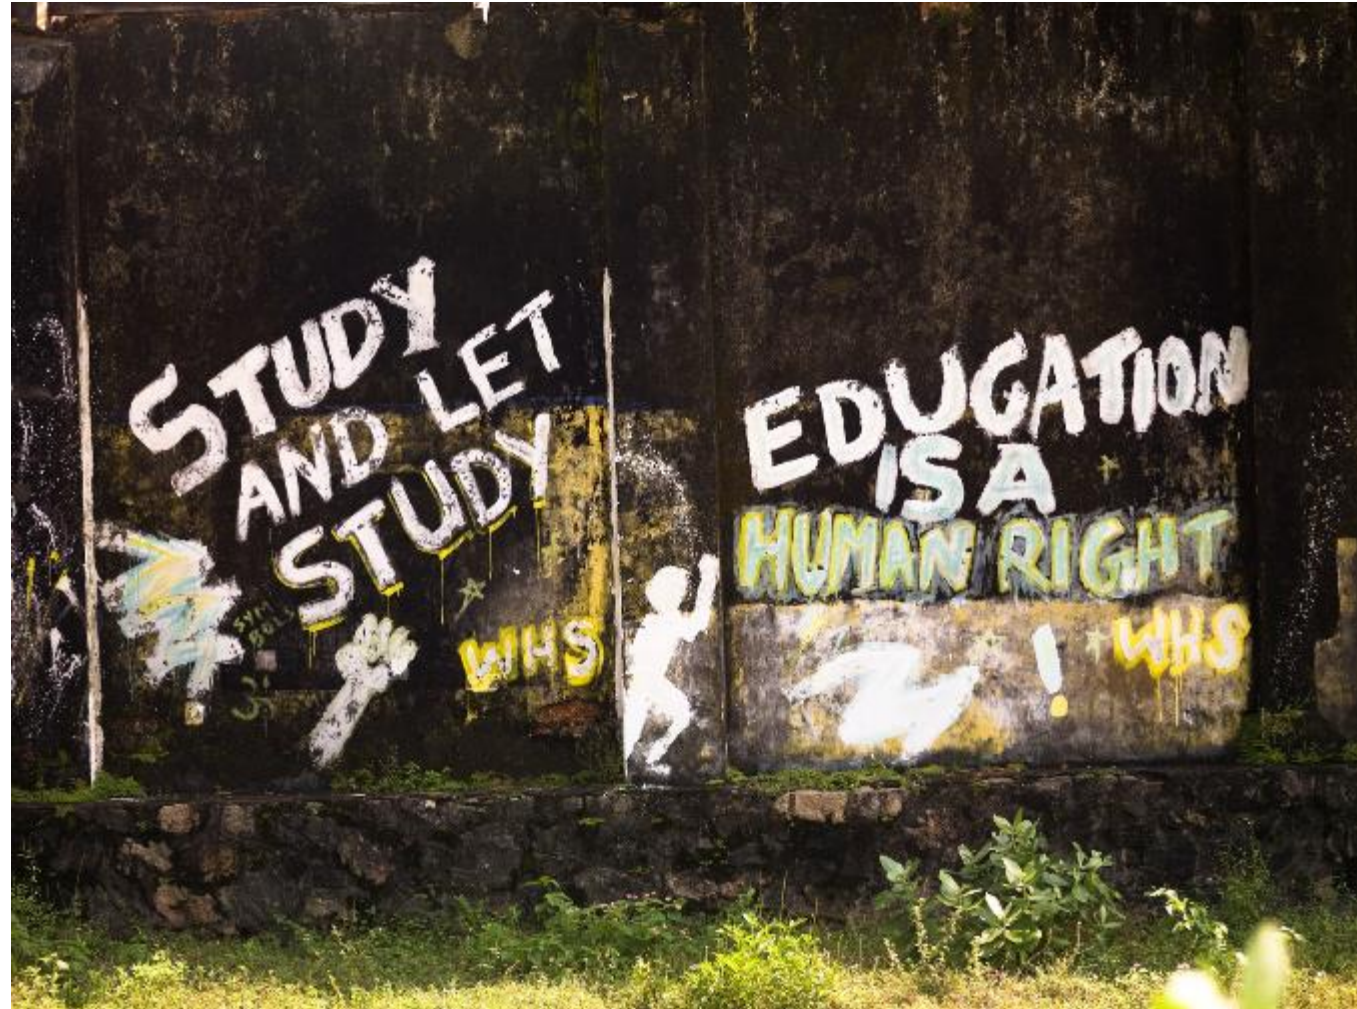 STUDY
AND LET
STUDY
WHS
EDUCATION
IS A
HUMAN RIGHT
! WHS